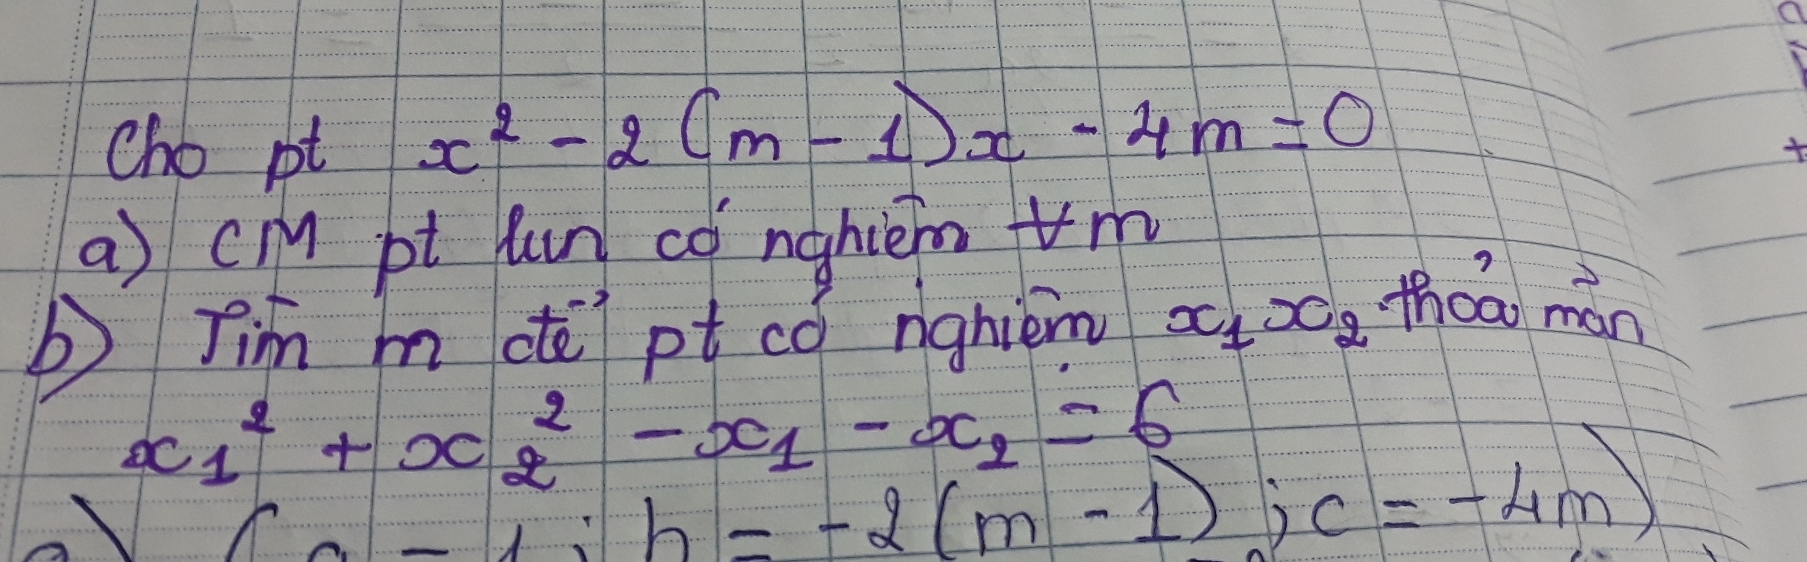 Cho pt x² - 2(m - 1)x - 4m = 0
a) CM pt lun có nghiêm ∀m
b) Tìm m để pt có nghiêm x₁ x₂ thỏa mãn
x₁² + x₂² - x₁ - x₂ = 6
a) (a = 1; b = -2(m - 1); c = -4m)